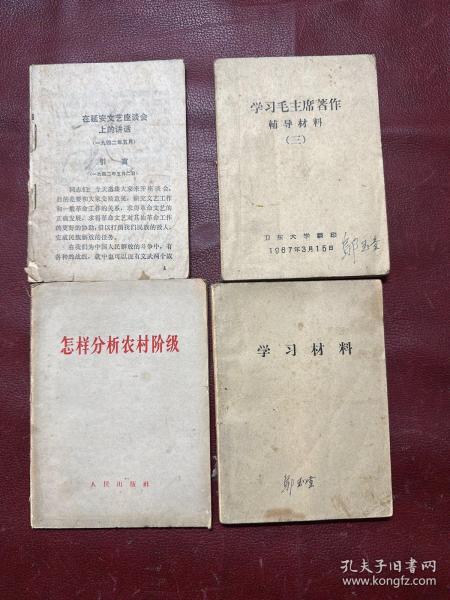 在延安文艺座谈会
上的讲话
(一九四二年五月)
引言
(一九四二年五月二日)
同志们！今天邀集大家来开座谈会，
目的是要和大家交换意见，研究文艺工作
和一般革命工作的关系，求得革命文艺的
正确发展，求得革命文艺对其他革命工作
的更好的协助，借以打倒我们民族的敌人，
完成民族解放的任务。
在我们为中国人民解放的斗争中，有
各种的战线，就中也可以说有文武两个战
1
学习毛主席著作
辅导材料
(三)
卫东大学翻印
1967年3月15日
怎样分析农村阶级
人民出版社
学习材料
孔夫子旧书网
www.kongfz.com